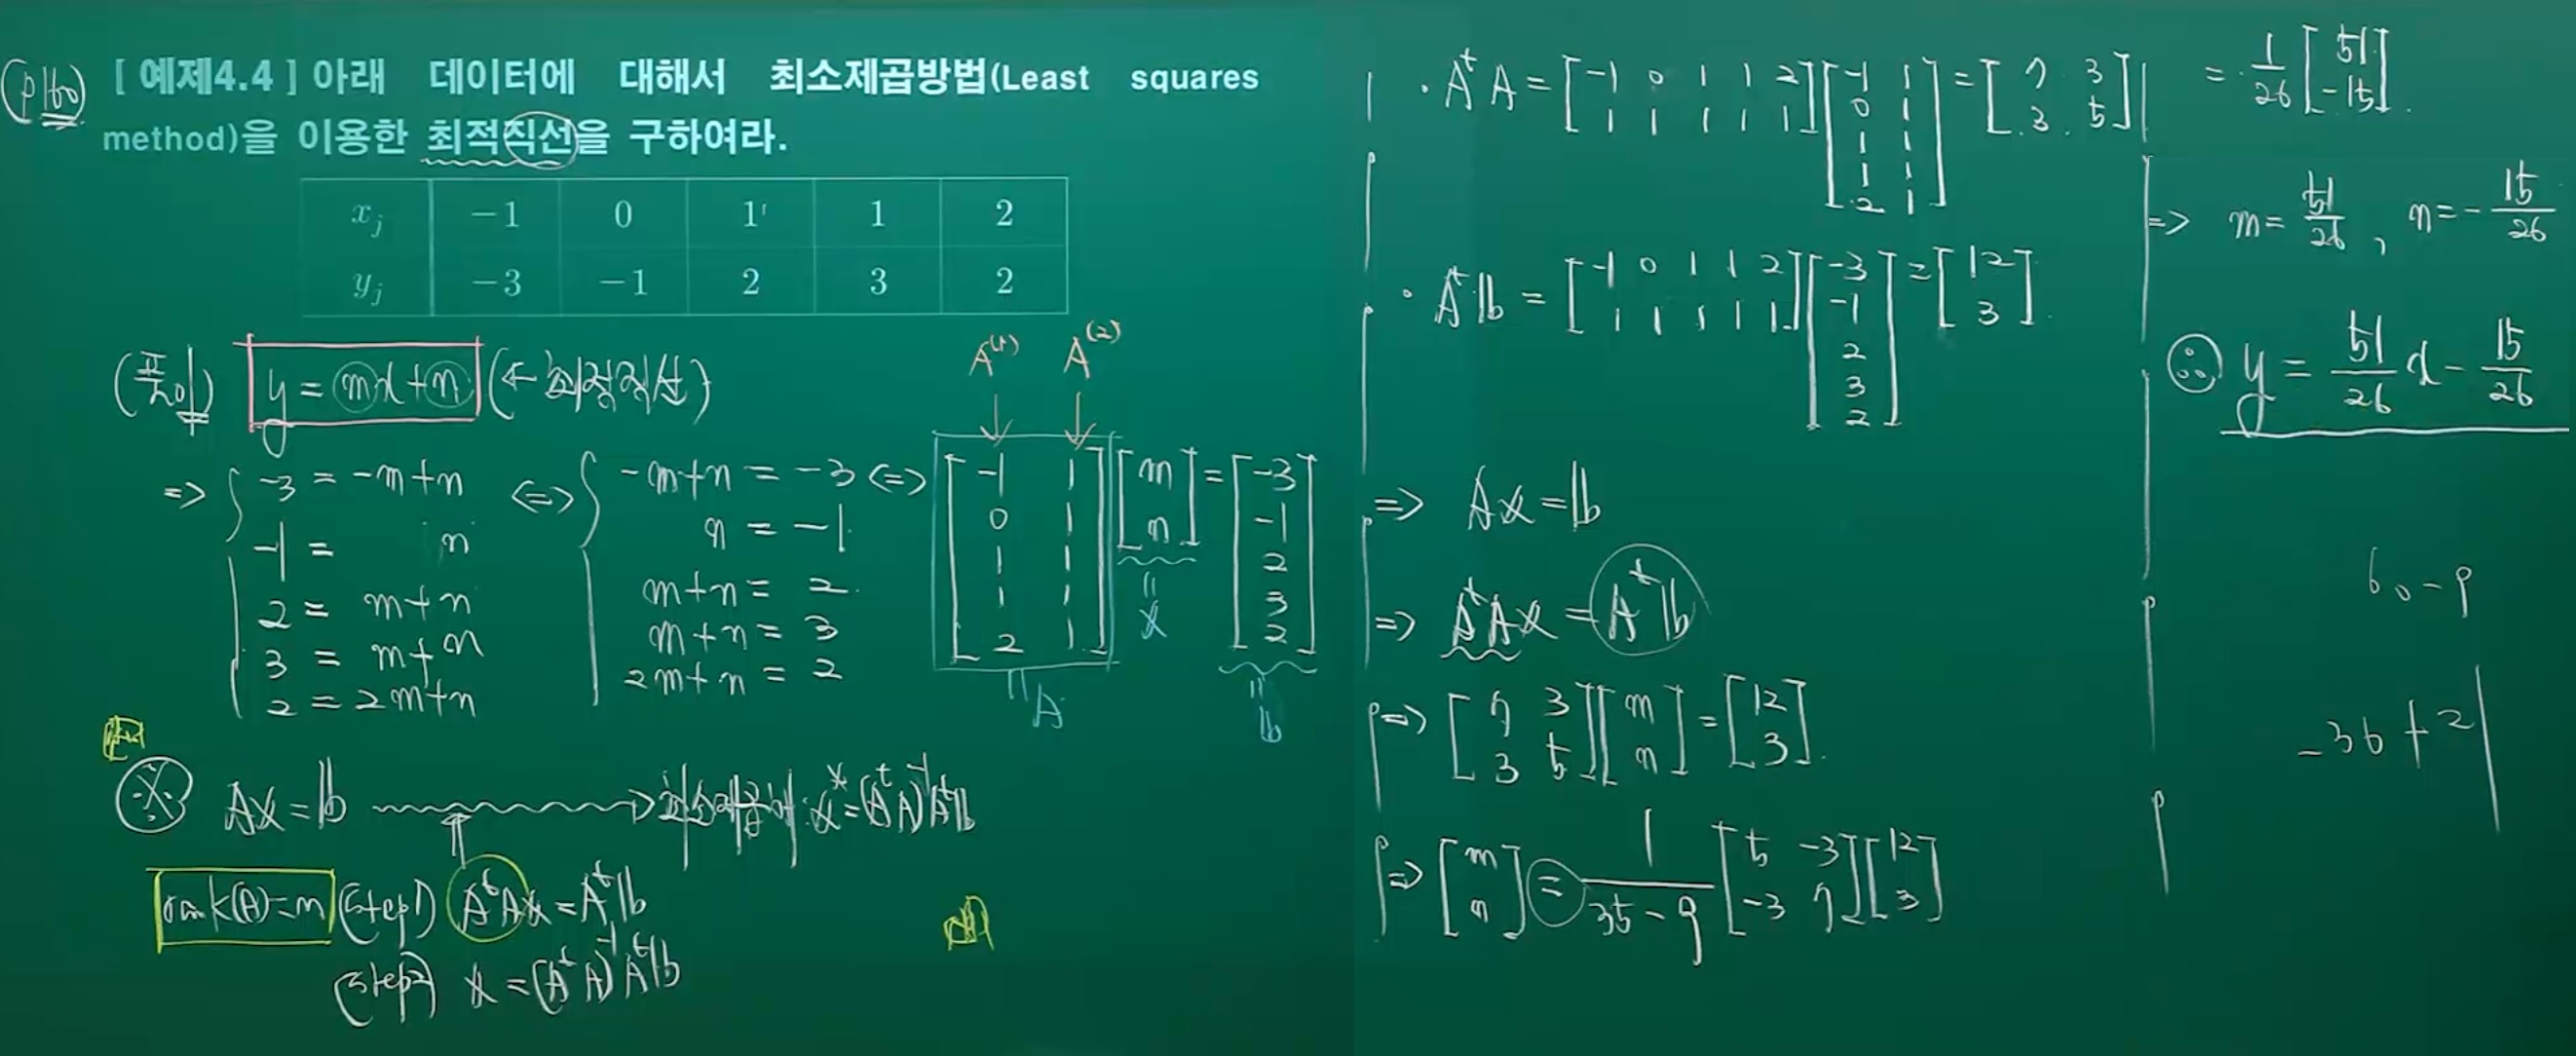 (p160) [ 예제4.4 ] 아래 데이터에 대해서 최소제곱방법(Least squares
method)을 이용한 최적직선을 구하여라.
x_j -1 0 1 1 2
y_j -3 -1 2 3 2
(풀이) y = mx+n (← 최적직선)
A^(1) A^(2)
⇒ { -3 = -m+n
-1 = n
2 = m+n
3 = m+n
2 = 2m+n
⇔ { -m+n = -3
n = -1
m+n = 2
m+n = 3
2m+n = 2
⇔ [-1 1; 0 1; 1 1; 1 1; 2 1] [m; n] = [-3; -1; 2; 3; 2]
"A "x "b
※ Ax = b → 최소제곱해 : x* = (A^t A)^-1 A^t b
rank(A)=n (step1) A^t Ax = A^t b
(step2) x = (A^t A)^-1 A^t b
· A^t A = [-1 0 1 1 2; 1 1 1 1 1] [-1 1; 0 1; 1 1; 1 1; 2 1] = [7 3; 3 5]
· A^t b = [-1 0 1 1 2; 1 1 1 1 1] [-3; -1; 2; 3; 2] = [12; 3].
⇒ Ax = b
⇒ A^t Ax = A^t b
⇒ [7 3; 3 5] [m; n] = [12; 3].
⇒ [m; n] = 1/(35-9) [5 -3; -3 7] [12; 3]
= 1/26 [51; -15].
⇒ m = 51/26 , n = -15/26
∴ y = 51/26 x - 15/26
60-9
-36+21